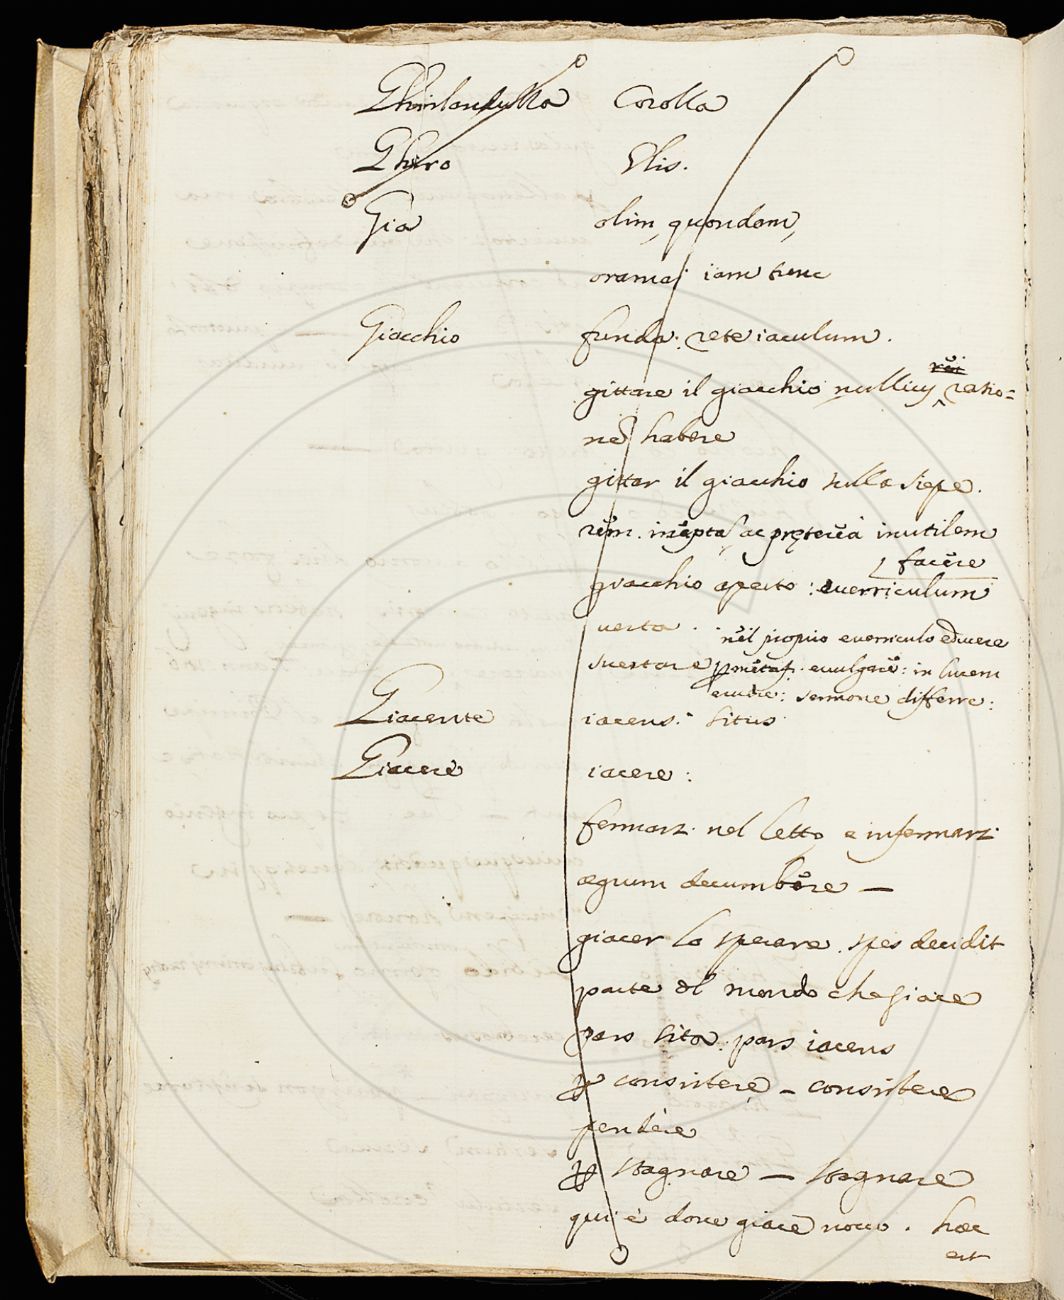 Ghirlandella Corolla
Ghiro Glis.
Già olim, quondam,
oramai iam nunc
Giacchio funda: rete iaculum.
gittare il giacchio nullius ratio=
nē habere
gittar il giacchio sulla siepe.
rem ineptā, ac pręterea inutilem
facere
giacchio aperto: euerriculum
nel propio everriculo educere
metaf. euulgare: in lucem
Giacente iacens: situs
sermone differre:
Giacere iacere:
fermarsi nel letto e infermarsi
ægrum decumbere —
giacer la sperare. spes decidit
parte del mondo che giace
pars sita: pars iacens
p consistere — consistere
pendere
p stagnare — stagnare
qui è doue giace hæc
est